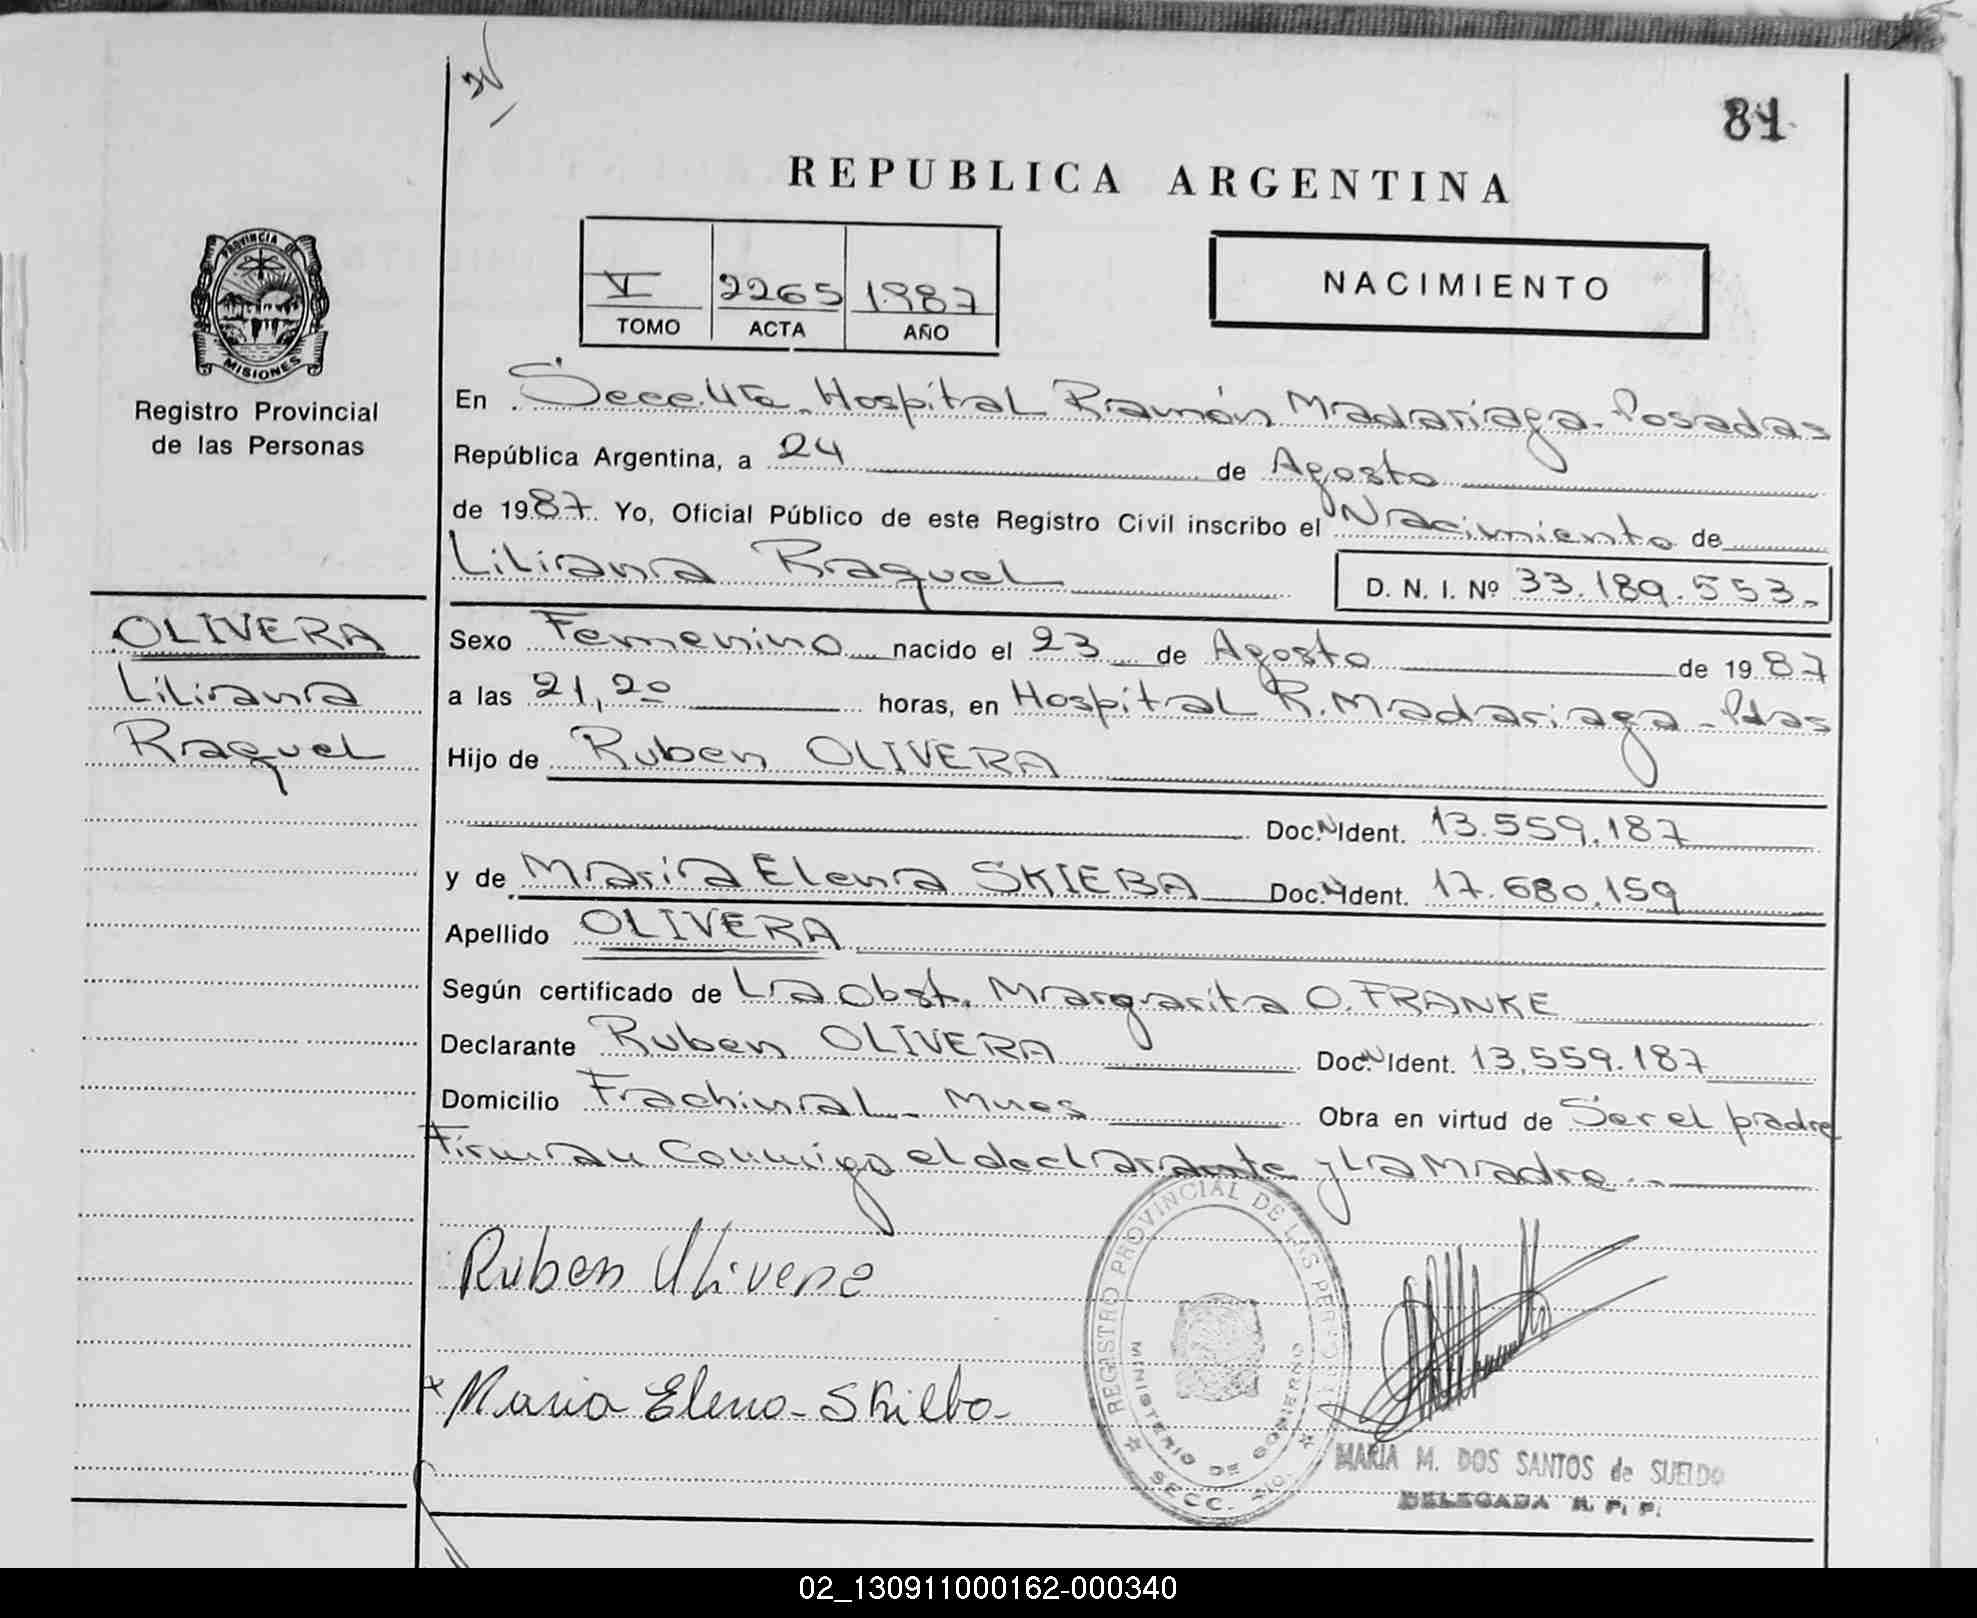 81
REPUBLICA ARGENTINA
V 2265 1987
TOMO ACTA AÑO
NACIMIENTO
PROVINCIA DE
MISIONES
Registro Provincial
de las Personas
En Secc. Hospital Ramón Madariaga - Posadas
República Argentina, a 24 de Agosto
de 1987. Yo, Oficial Público de este Registro Civil inscribo el Nacimiento de
Liliana Raquel D. N. I. Nº 33.189.553.-
OLIVERA
Liliana
Raquel
Sexo Femenino nacido el 23 de Agosto de 1987
a las 21,20 horas, en Hospital R. Madariaga - Pdas
Hijo de Ruben OLIVERA
Doc. N Ident. 13.559.187
y de Maria Elena SKIEBA Doc. N Ident. 17.680.159
Apellido OLIVERA
Según certificado de La Obst. Margarita O. FRANKE
Declarante Ruben OLIVERA Doc. N Ident. 13.559.187
Domicilio Frachinal - Mnes Obra en virtud de Ser el padre
Firman Conmigo el declarante y La Madre.-
Ruben Olivera
x Maria Elena - Skieba -
REGISTRO PROVINCIAL DE LAS PERSONAS
MINISTERIO DE GOBIERNO
SECC.
MARIA M. DOS SANTOS de SUELDO
DELEGADA R. P. P.
02_130911000162-000340